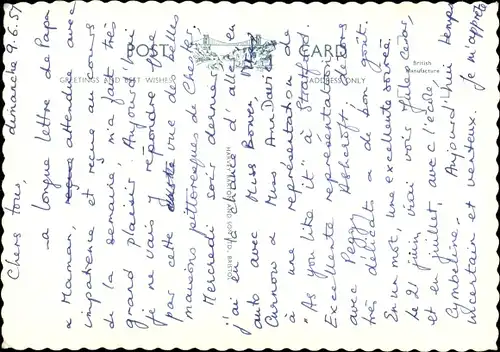 POST CARD
GREETINGS AND BEST WISHES
ADDRESS ONLY
British
Manufacture
dimanche 9.6.57
Chers tous,
La longue lettre de Papa
& Maman, attendue avec
impatience et reçue au cours
de la semaine, m'a fait très
grand plaisir. Aujourd'hui
je ne vais y répondre que
par cette vue de belles
maisons pittoresques de Chester.
Mercredi soir dernier,
j'ai eu la chance d'aller en
auto avec Miss Bower, Miss
Curnow & Miss Ann Davis
à une représentation de
"As you like it" à Stratford
Excellente représentation
avec Peggy Ashcroft; décors
très délicats & de bon goût.
En un mot, une excellente soirée
Le 21 juin, j'irai voir Jules César,
et en juillet, avec l'école,
Cymbeline. Aujourd'hui temps
incertain et venteux. Je m'apprête